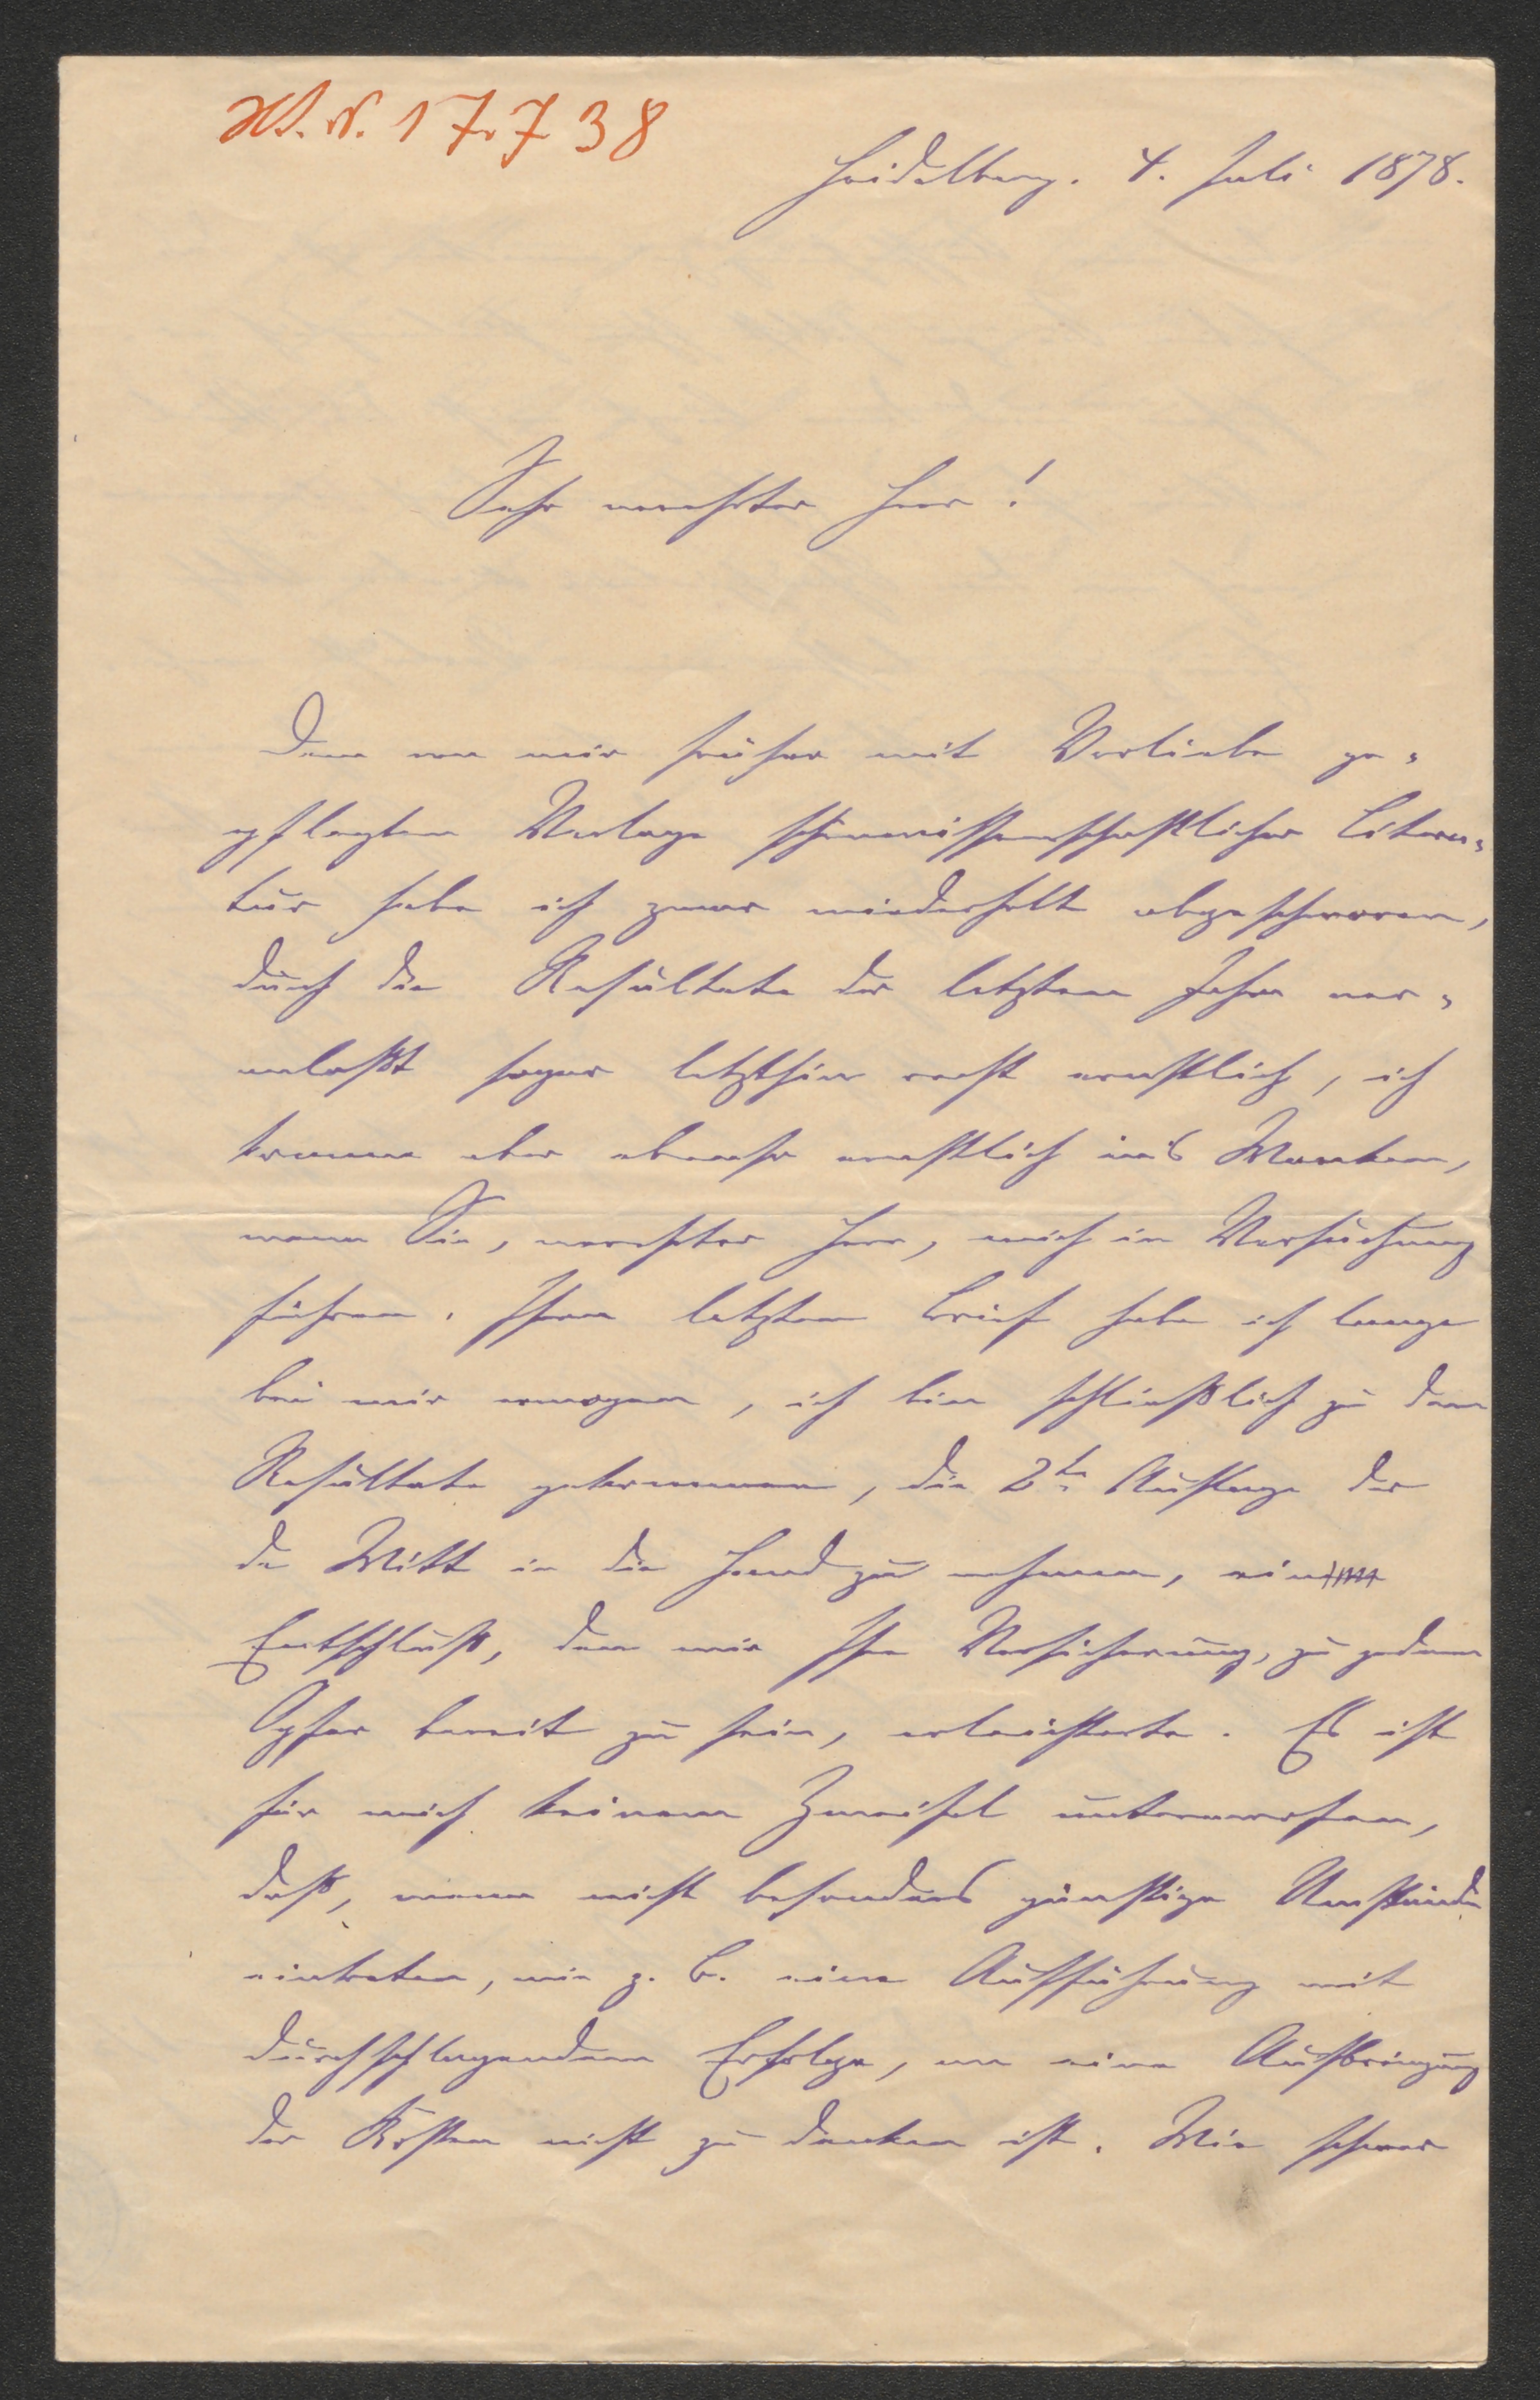 H. N. 17.738
Heidelberg. 4. Juli 1878.
Sehr verehrter Herr!
Dem von mir früher mit Vorliebe ge-
pflegten Verlage schönwissenschaftlicher Litera-
tur habe ich zwar wiederholt abgeschworen,
durch die Resultate der letzten Jahre ver-
anlaßt sogar letzthin recht ernstlich, ich
komme aber ebenso ernstlich in's Wanken,
wenn Sie, verehrter Herr, mich in Versuchung
führen. Ihren letzten Brief habe ich lange
bei mir erwogen, ich bin schließlich zu dem
Resultate gekommen, die 2te Auflage der
de Witt in die Hand zu nehmen, ein
Entschluß, den mir Ihre Versicherung, zu jedem
Opfer bereit zu sein, erleichterte. Es ist
für mich keinem Zweifel unterworfen,
daß, wenn nicht besonders günstige Umstände
eintreten, wie z. B. eine Aufführung mit
durchschlagendem Erfolge, an eine Aufbringung
der Kosten nicht zu denken ist. Wie schwer